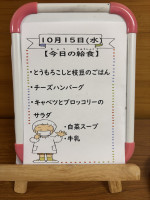 10月15日(水)
【今日の給食】
・とうもろこしと枝豆のごはん
・チーズハンバーグ
・キャベツとブロッコリーの
サラダ
・白菜スープ
・牛乳